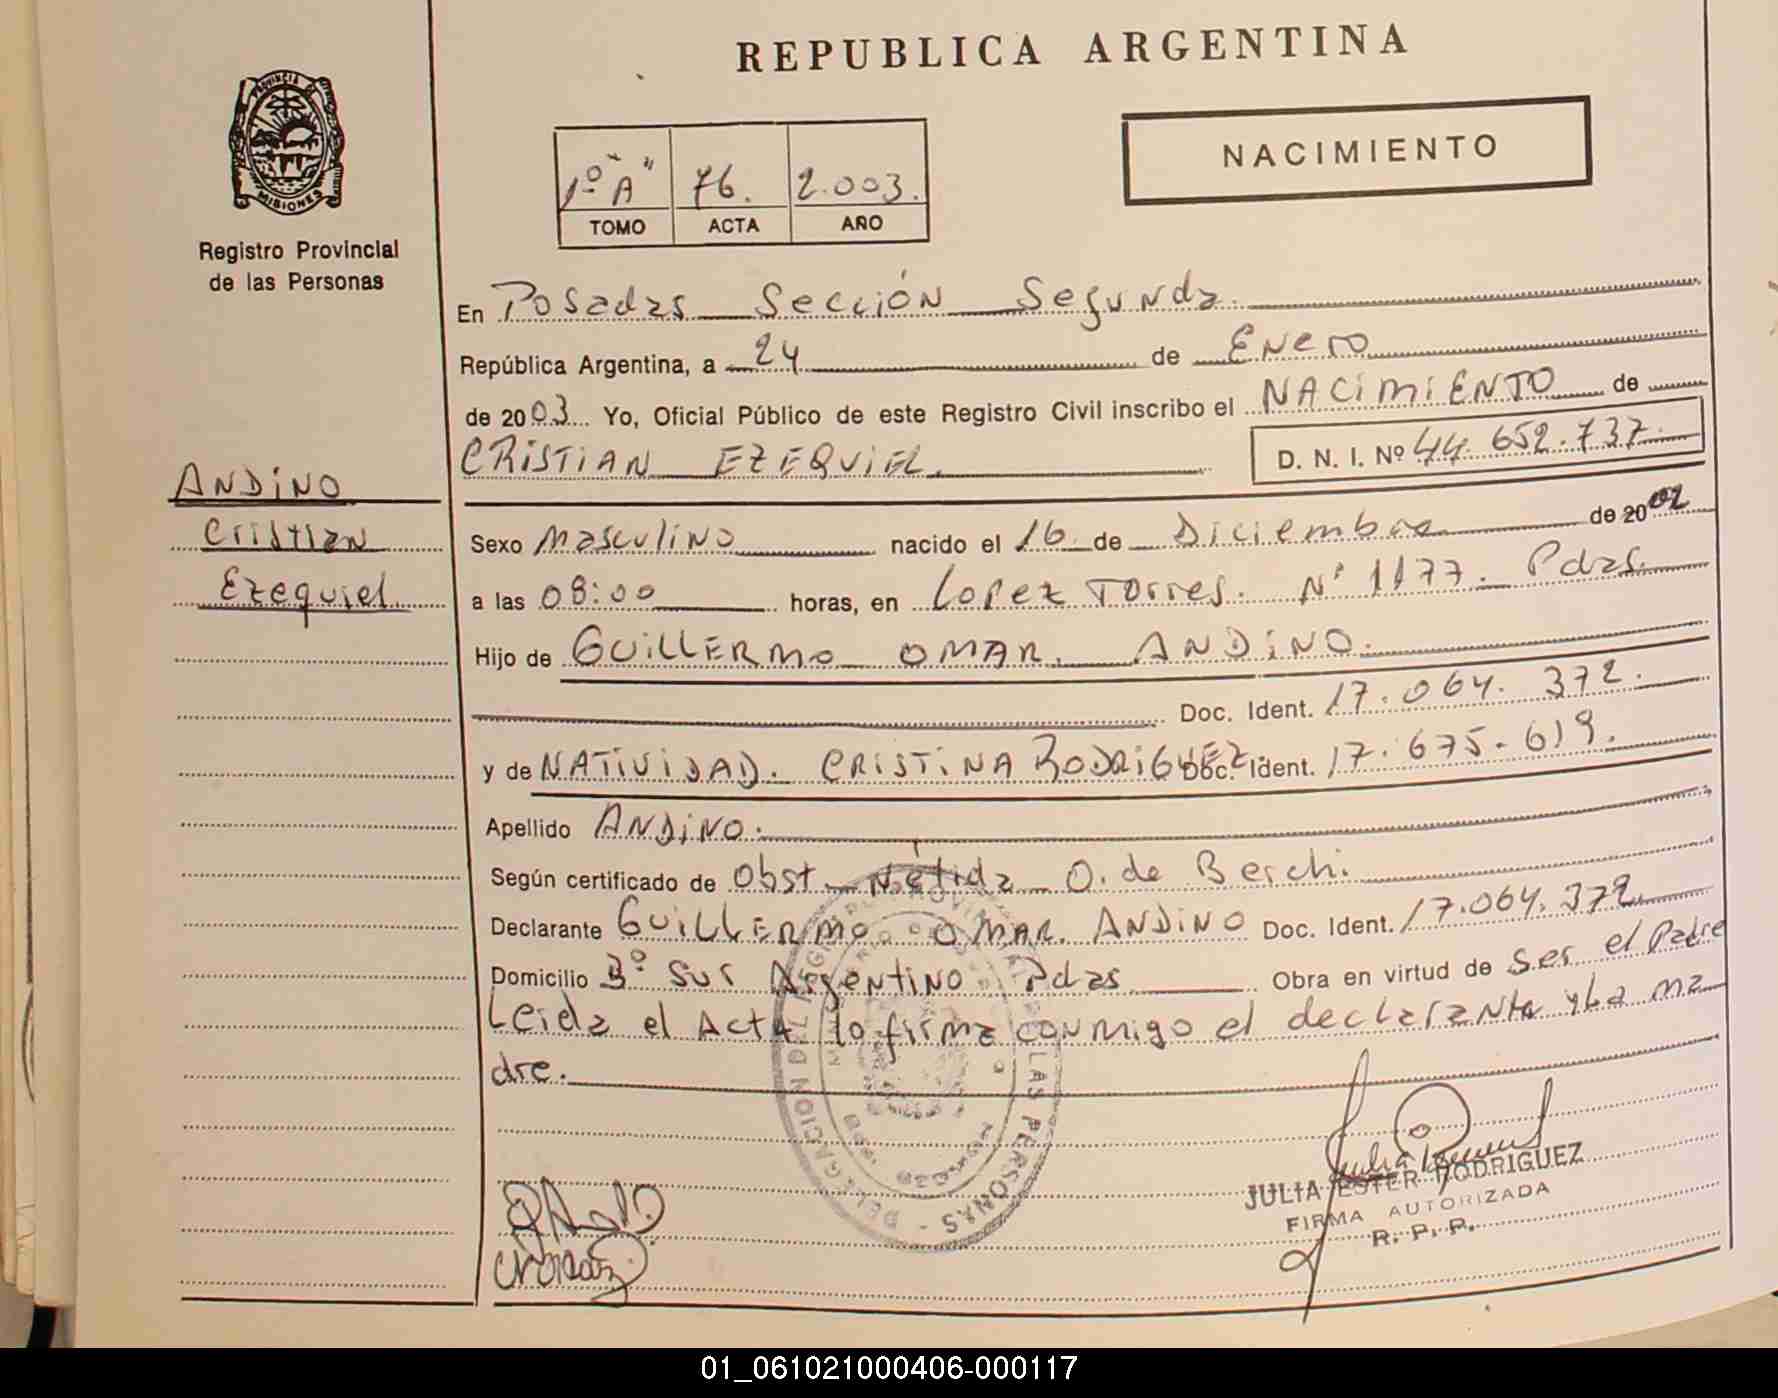 REPUBLICA ARGENTINA
PROVINCIA DE
MISIONES
Registro Provincial
de las Personas
1º "A" 76. 2.003.
TOMO ACTA AÑO
NACIMIENTO
En Posadas Sección Segunda
República Argentina, a 24 de Enero
de 2003 Yo, Oficial Público de este Registro Civil inscribo el NACIMIENTO de
CRISTIAN EZEQUIEL. D. N. I. Nº 44.652.737.
ANDINO
Cristian
Ezequiel
Sexo Masculino nacido el 16 de Diciembre de 2002
a las 08:00 horas, en Lopez Torres. Nº 1177. Pdas.
Hijo de GUILLERMO OMAR. ANDINO.
Doc. Ident. 17.064.372.
y de NATIVIDAD. CRISTINA RODRIGUEZ. Doc. Ident. 17.675.619.
Apellido ANDINO.
Según certificado de Obst. Nélida O. de Berchi.
Declarante GUILLERMO OMAR. ANDINO Doc. Ident. 17.064.372
Domicilio 3º Sur Argentino Pdas Obra en virtud de Ser el Padre
Leida el Acta lo firma conmigo el declarante y La ma
dre.
DELEGACION DEL REGISTRO PROVINCIAL DE LAS PERSONAS
JULIA ESTER RODRIGUEZ
FIRMA AUTORIZADA
R. P. P.
01_061021000406-000117